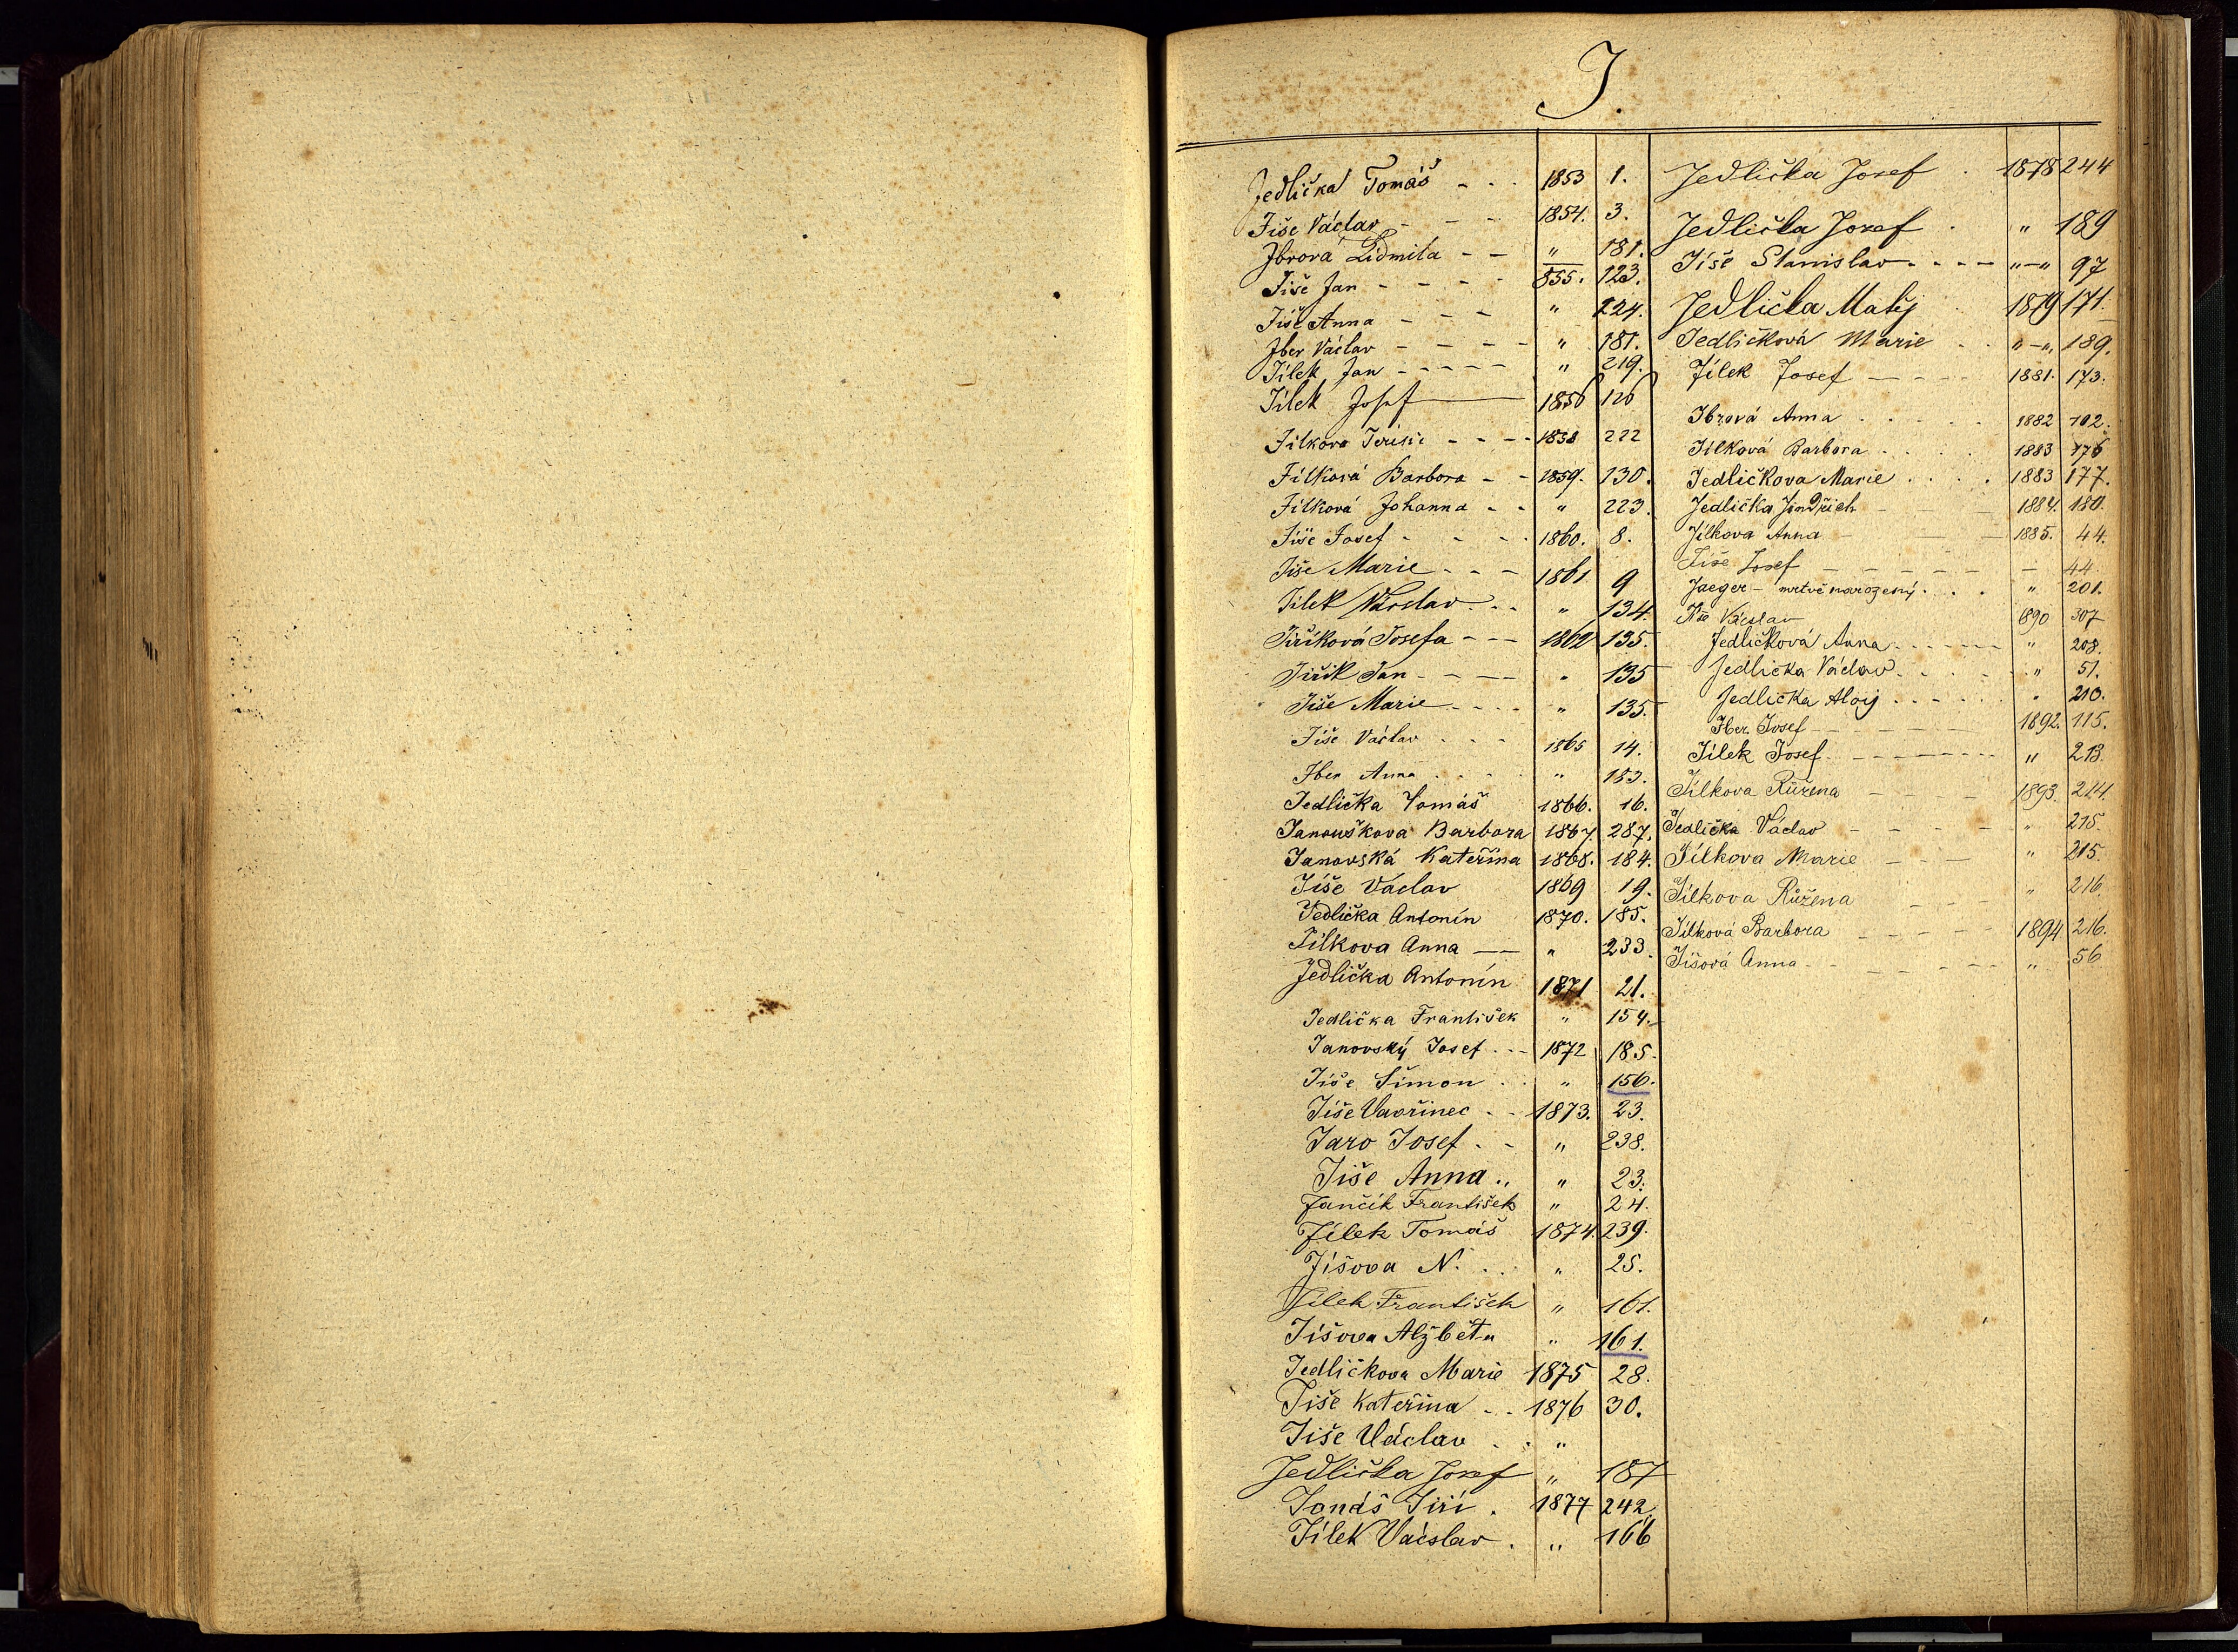 J.
Jedlička Tomáš - - - 1853 1.
Jiše Václav - - - 1854. 3.
Jbrová Lidmila - - " 181.
Jiše Jan - - - - 855. 123.
Jiše Anna - - - " 224.
Jber Václav - - - - " 181.
Jílek Jan - - - - - " 219.
Jílek Josef - 1856 126
Jilkova Terisie - - - - 1858 222
Jílková Barbora - - 1859. 130.
Jílková Johanna - - " 223.
Jíše Josef - - - - 1860. 8.
Jiše Marie - - - 1861 9
Jílek Václav - - " 134.
Jiříková Josefa - - - 1862 135.
Jiřík Jan - - - - " 135
Jiše Marie - - - - " 135.
Jíše Václav . - - 1865 14.
Jber Anna . - - - " 183.
Jedlička Tomáš 1866. 16.
Janouškova Barbora 1867. 287.
Janovská Kateřina 1868. 184.
Jíše Václav 1869 19.
Jedlička Antonín 1870. 185.
Jílkova Anna - " 233.
Jedlička Antonín 1871 21.
Jedlička František " 154.
Janovský Josef . - - 1872 185.
Jíše Šimon . . " 156.
Jíše Vavřinec - - 1873. 23.
Jaro Josef . - " 238.
Jiše Anna .. " 23.
Jančík František " 24.
Jílek Tomáš 1874. 239.
Jíšova N. . . " 25.
Jílek František " 161.
Jíšova Alžběta " 161.
Jedličkova Marie 1875 28.
Jiše Kateřina - . 1876 30.
Jíše Václav . . "
Jedlička Josef " 187
Janáš Jiří . 1877 242.
Jílek Vácslav . " 166
Jedlička Josef . 1878 244
Jedlička Josef . " 189
Jíše Stanislav - - - - "-" 97
Jedlička Matěj 1879 171.
Jedličková Marie . . "-" 189.
Jílek Josef - - - 1881. 173.
Jbrová Anna . . . . . 1882 102.
Jílková Barbora . . . . 1883 176
Jedličkova Marie . . . . 1883 177.
Jedlička Jindřich - - - 1884. 180.
Jílkova Anna - - - 1885. 44.
Jíše Josef - - - - - - - 44
Jaeger - mrtvě narozený . . . " 201.
Jíše Václav 890 307
Jedličková Anna - - - - - - " 208.
Jedlička Václav . . . . . " 51.
Jedlička Alois . . - - - " 210.
Jber Josef - - - - - - 1892. 115.
Jílek Josef - - - - - - - " 213.
Jílkova Růžena - - - - 1893. 214.
Jedlička Václav - - - - - " 215.
Jílkova Marie - - - " 215.
Jílkova Růžena - - - " 216
Jílková Barbora - - - - - 1894 216.
Jíšová Anna - - - - - - " 56